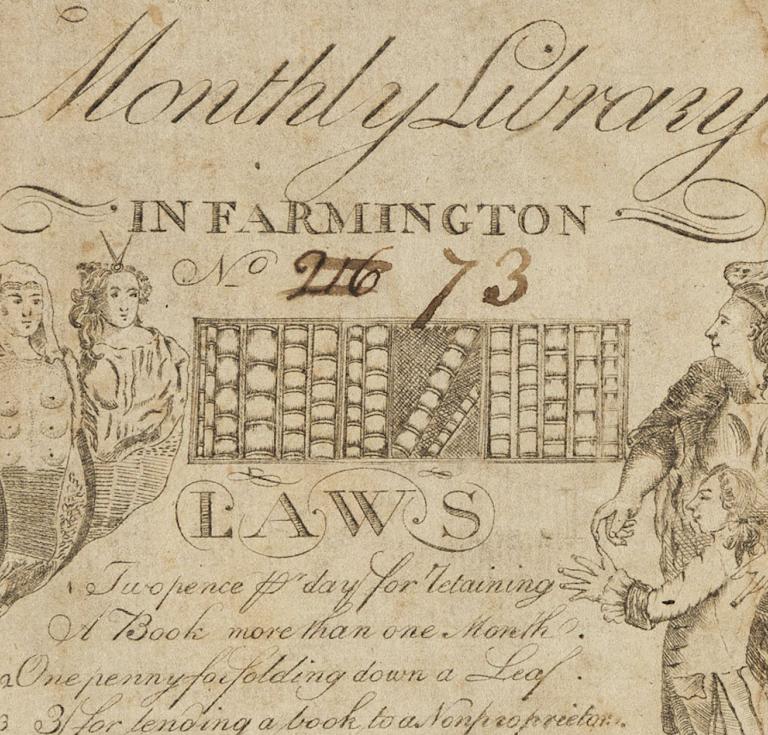 Monthly Library
IN FARMINGTON
No 216 73
LAWS
1 Twopence Pr day for retaining
A Book more than one Month.
2 One penny for folding down a Leaf.
3 3/ for lending a book to a Nonproprietor.